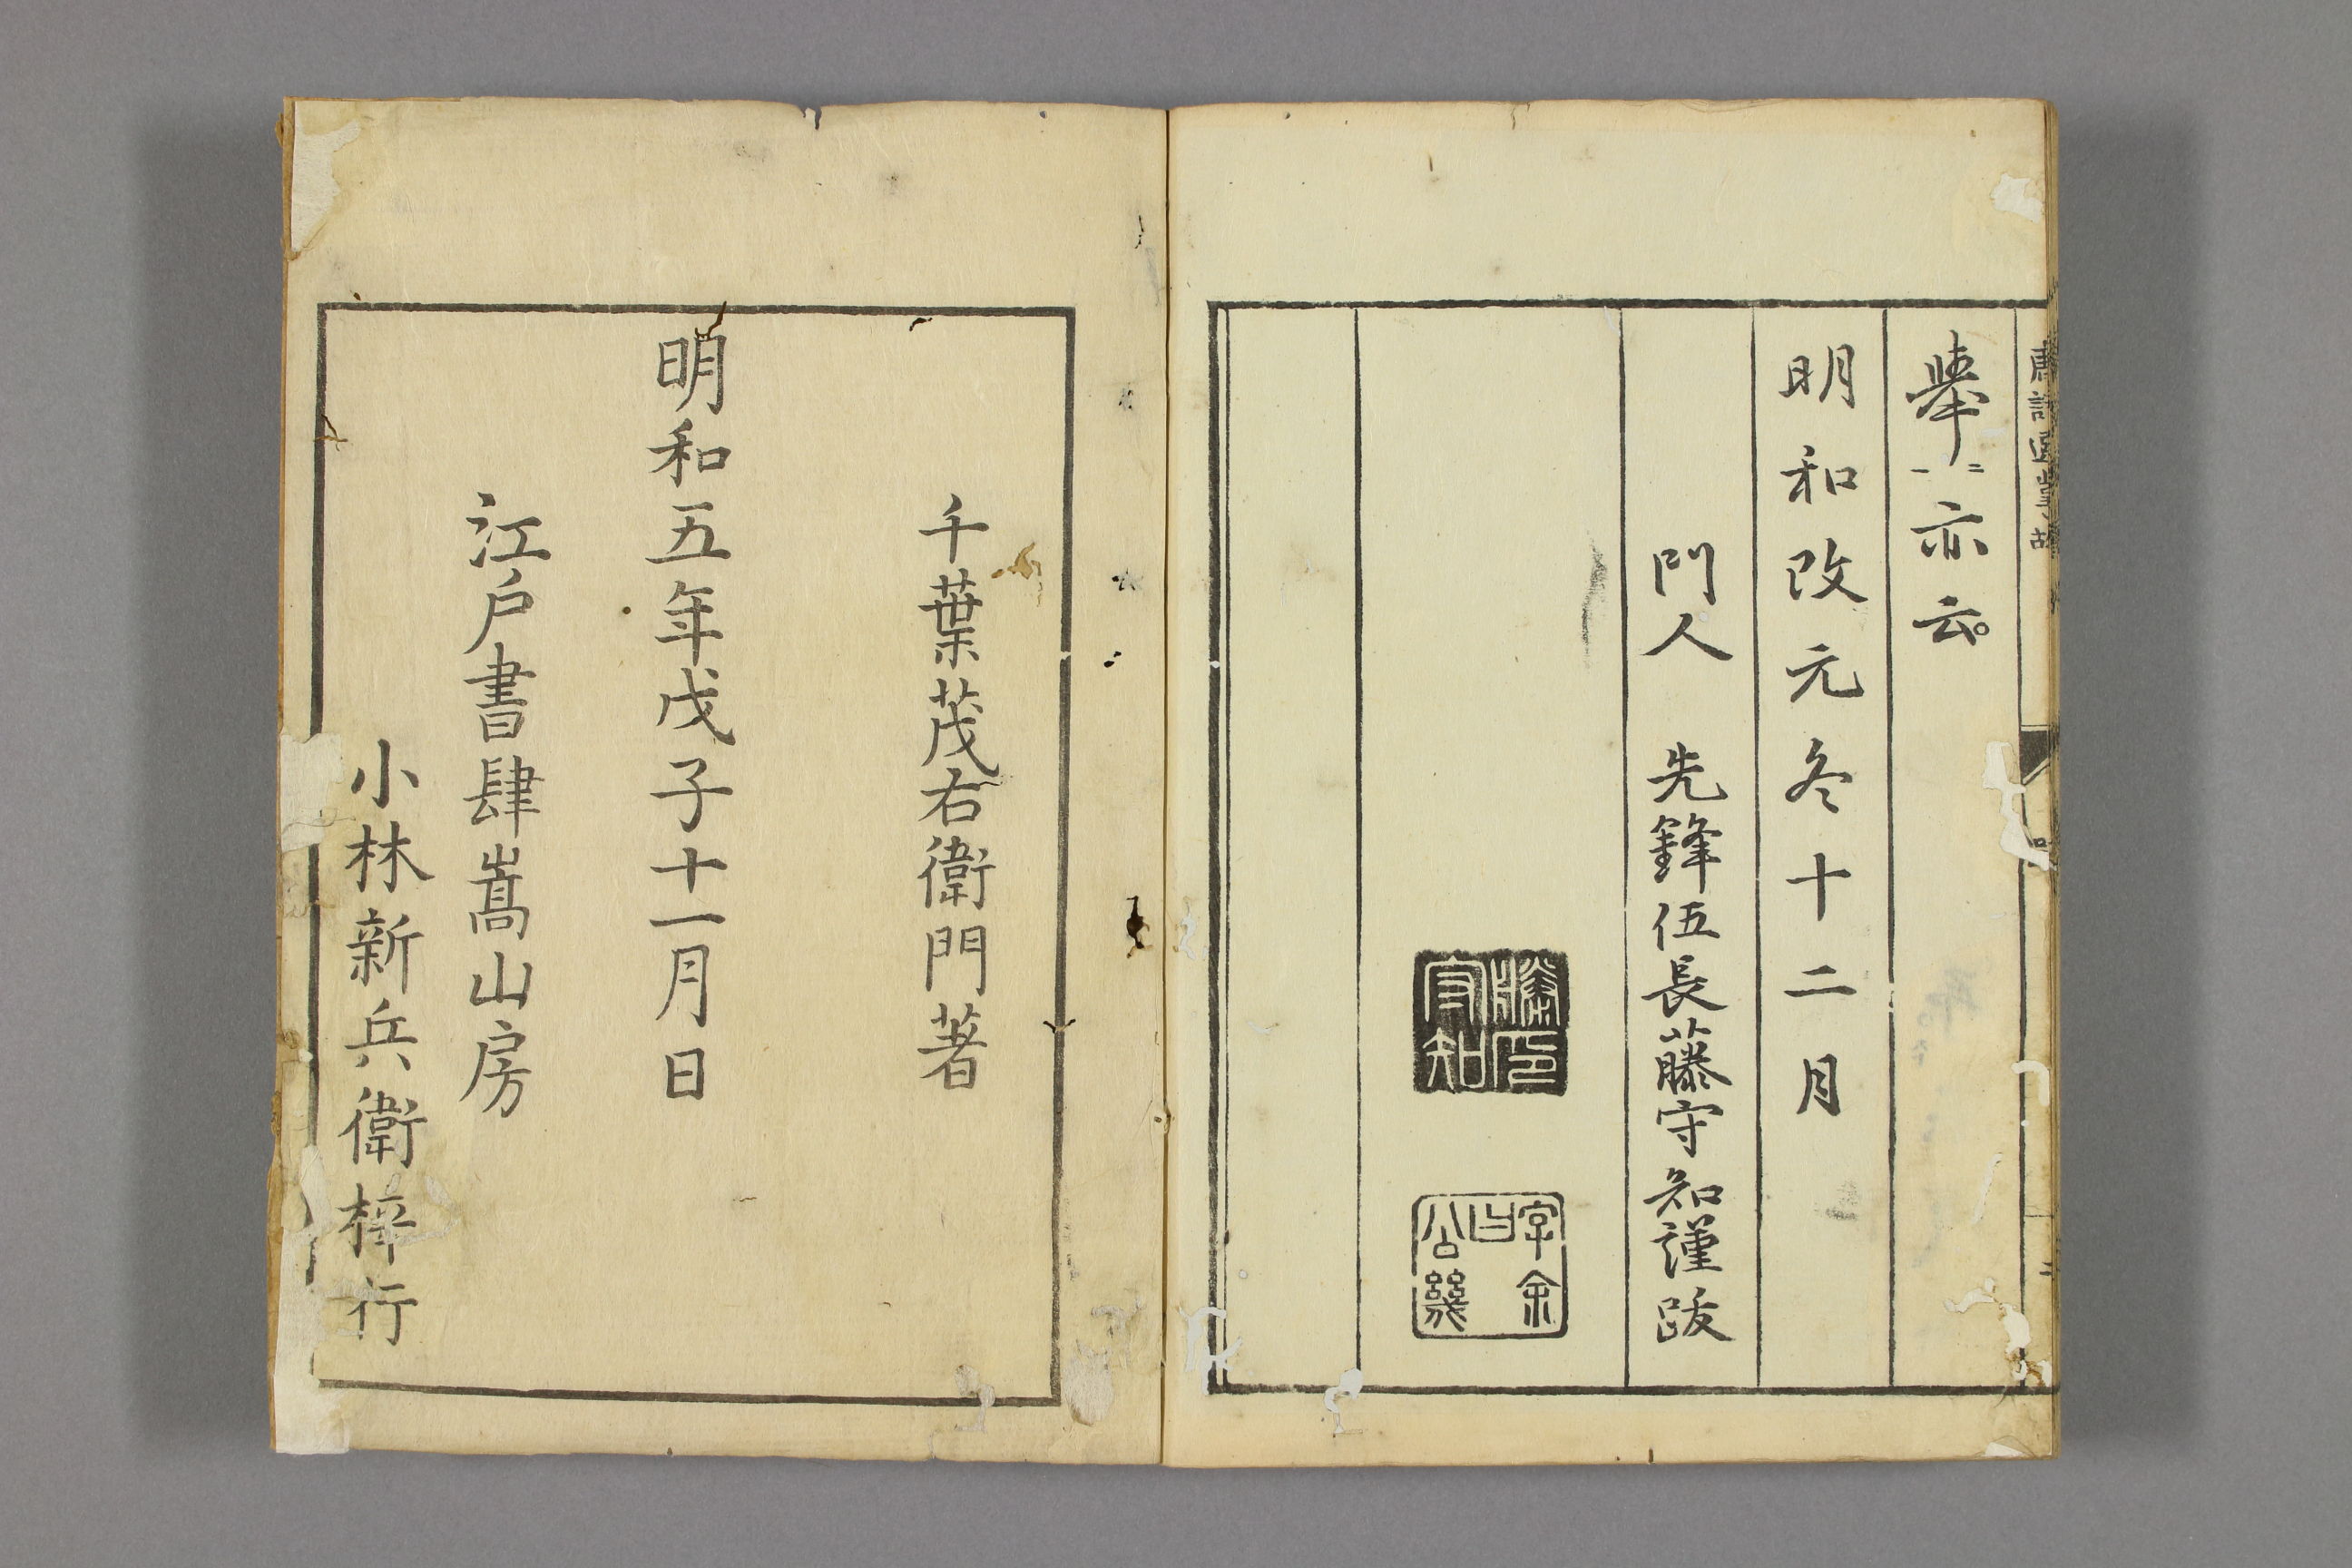 舉亦云。
明和改元冬十二月
門人 先鋒伍長藤守知謹跋
藤印守知
字余曰公幾
千葉茂右衞門著
明和五年戊子十一月日
江戸書肆嵩山房
小林新兵衞梓行